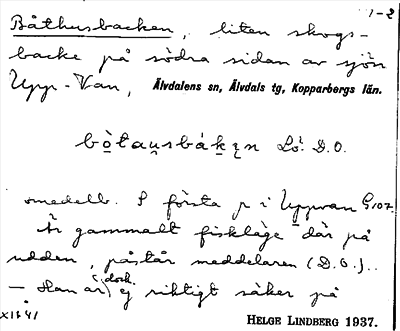 1-2
Båthusbacken, liten skogs-
backe på södra sidan av sjön
Upp-Van, Älvdalens sn, Älvdals tg, Kopparbergs län.
bòtau̯sbákn̥ Lö. D.O.
omedelb. S första p i Uppvan G107.
Är gammalt fiskläge där på
udden, påstår meddelaren (D.O.)..
– Han är, dock, ej riktigt säker på
XII41
HELGE LINDBERG 1937.